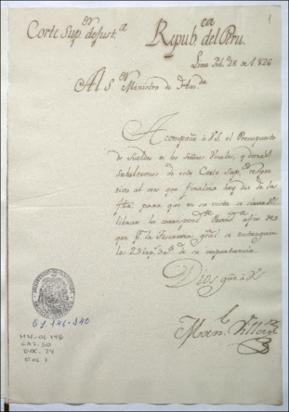 1
Corte Sup.or de Just.a Repub.ca del Perú.
Lima Feb. 28 de 1826
Al S.or Ministro de Hac.da
Acompaño á V.S. el Presupuesto
de sueldos de los señores Vocales, y demas
subalternos de esta Corte Sup.or respec
tivo al mes que finaliza hoy dia de la
fha; para que en su vista se sirva
librar la correspond.te
que p.r la Tesoreria gral se entreguen
los
de su importancia.
Dios gue á V.S.
Man.l Villarán
O.L. 146-840
MH-OL-146
CAJ. 50
DOC. 74
FOL. 1